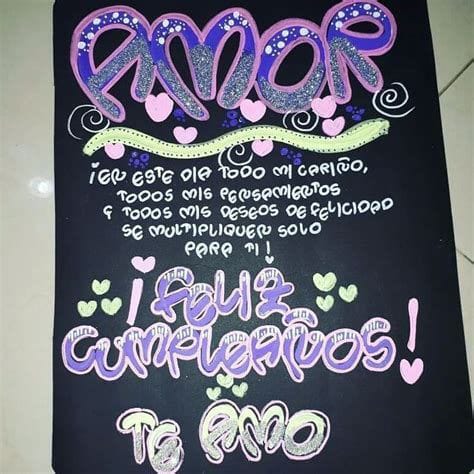 AMOR
¡EN ESTE DIA TODO MI CARIÑO,
TODOS MIS PENSAMIENTOS
Y TODOS MIS DESEOS DE FELICIDAD
SE MULTIPLIQUEN SOLO
PARA TI!
¡FELIZ
CUMPLEAÑOS!
TE AMO